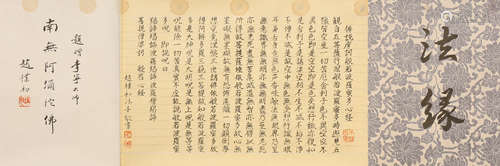 法緣
佛說摩訶般若波羅蜜多心經
觀自在菩薩行深般若波羅蜜多時照見五
蘊皆空度一切苦厄舍利子色不異空空不
異色色即是空空即是色受想行識亦復如
是舍利子是諸法空相不生不滅不垢不淨
不增不減是故空中無色無受想行識無眼
耳鼻舌身意無色聲香味觸法無眼界乃至
無意識界無無明亦無無明盡乃至無老死
亦無老死盡無苦集滅道無智亦無得以無
所得故菩提薩埵依般若波羅蜜多故心無
罣礙無罣礙故無有恐怖遠離一切顛倒夢
想究竟涅槃三世諸佛依般若波羅蜜多故
得阿耨多羅三藐三菩提故知般若波羅蜜
多是大神咒是大明咒是無上咒是無等等
咒能除一切苦真實不虛故說般若波羅蜜
多咒即說咒曰
揭諦揭諦波羅揭諦波羅僧揭諦
菩提薩婆訶 般若心經
趙樸初沐手敬書
題贈
大師
南無阿彌陀佛
趙樸初